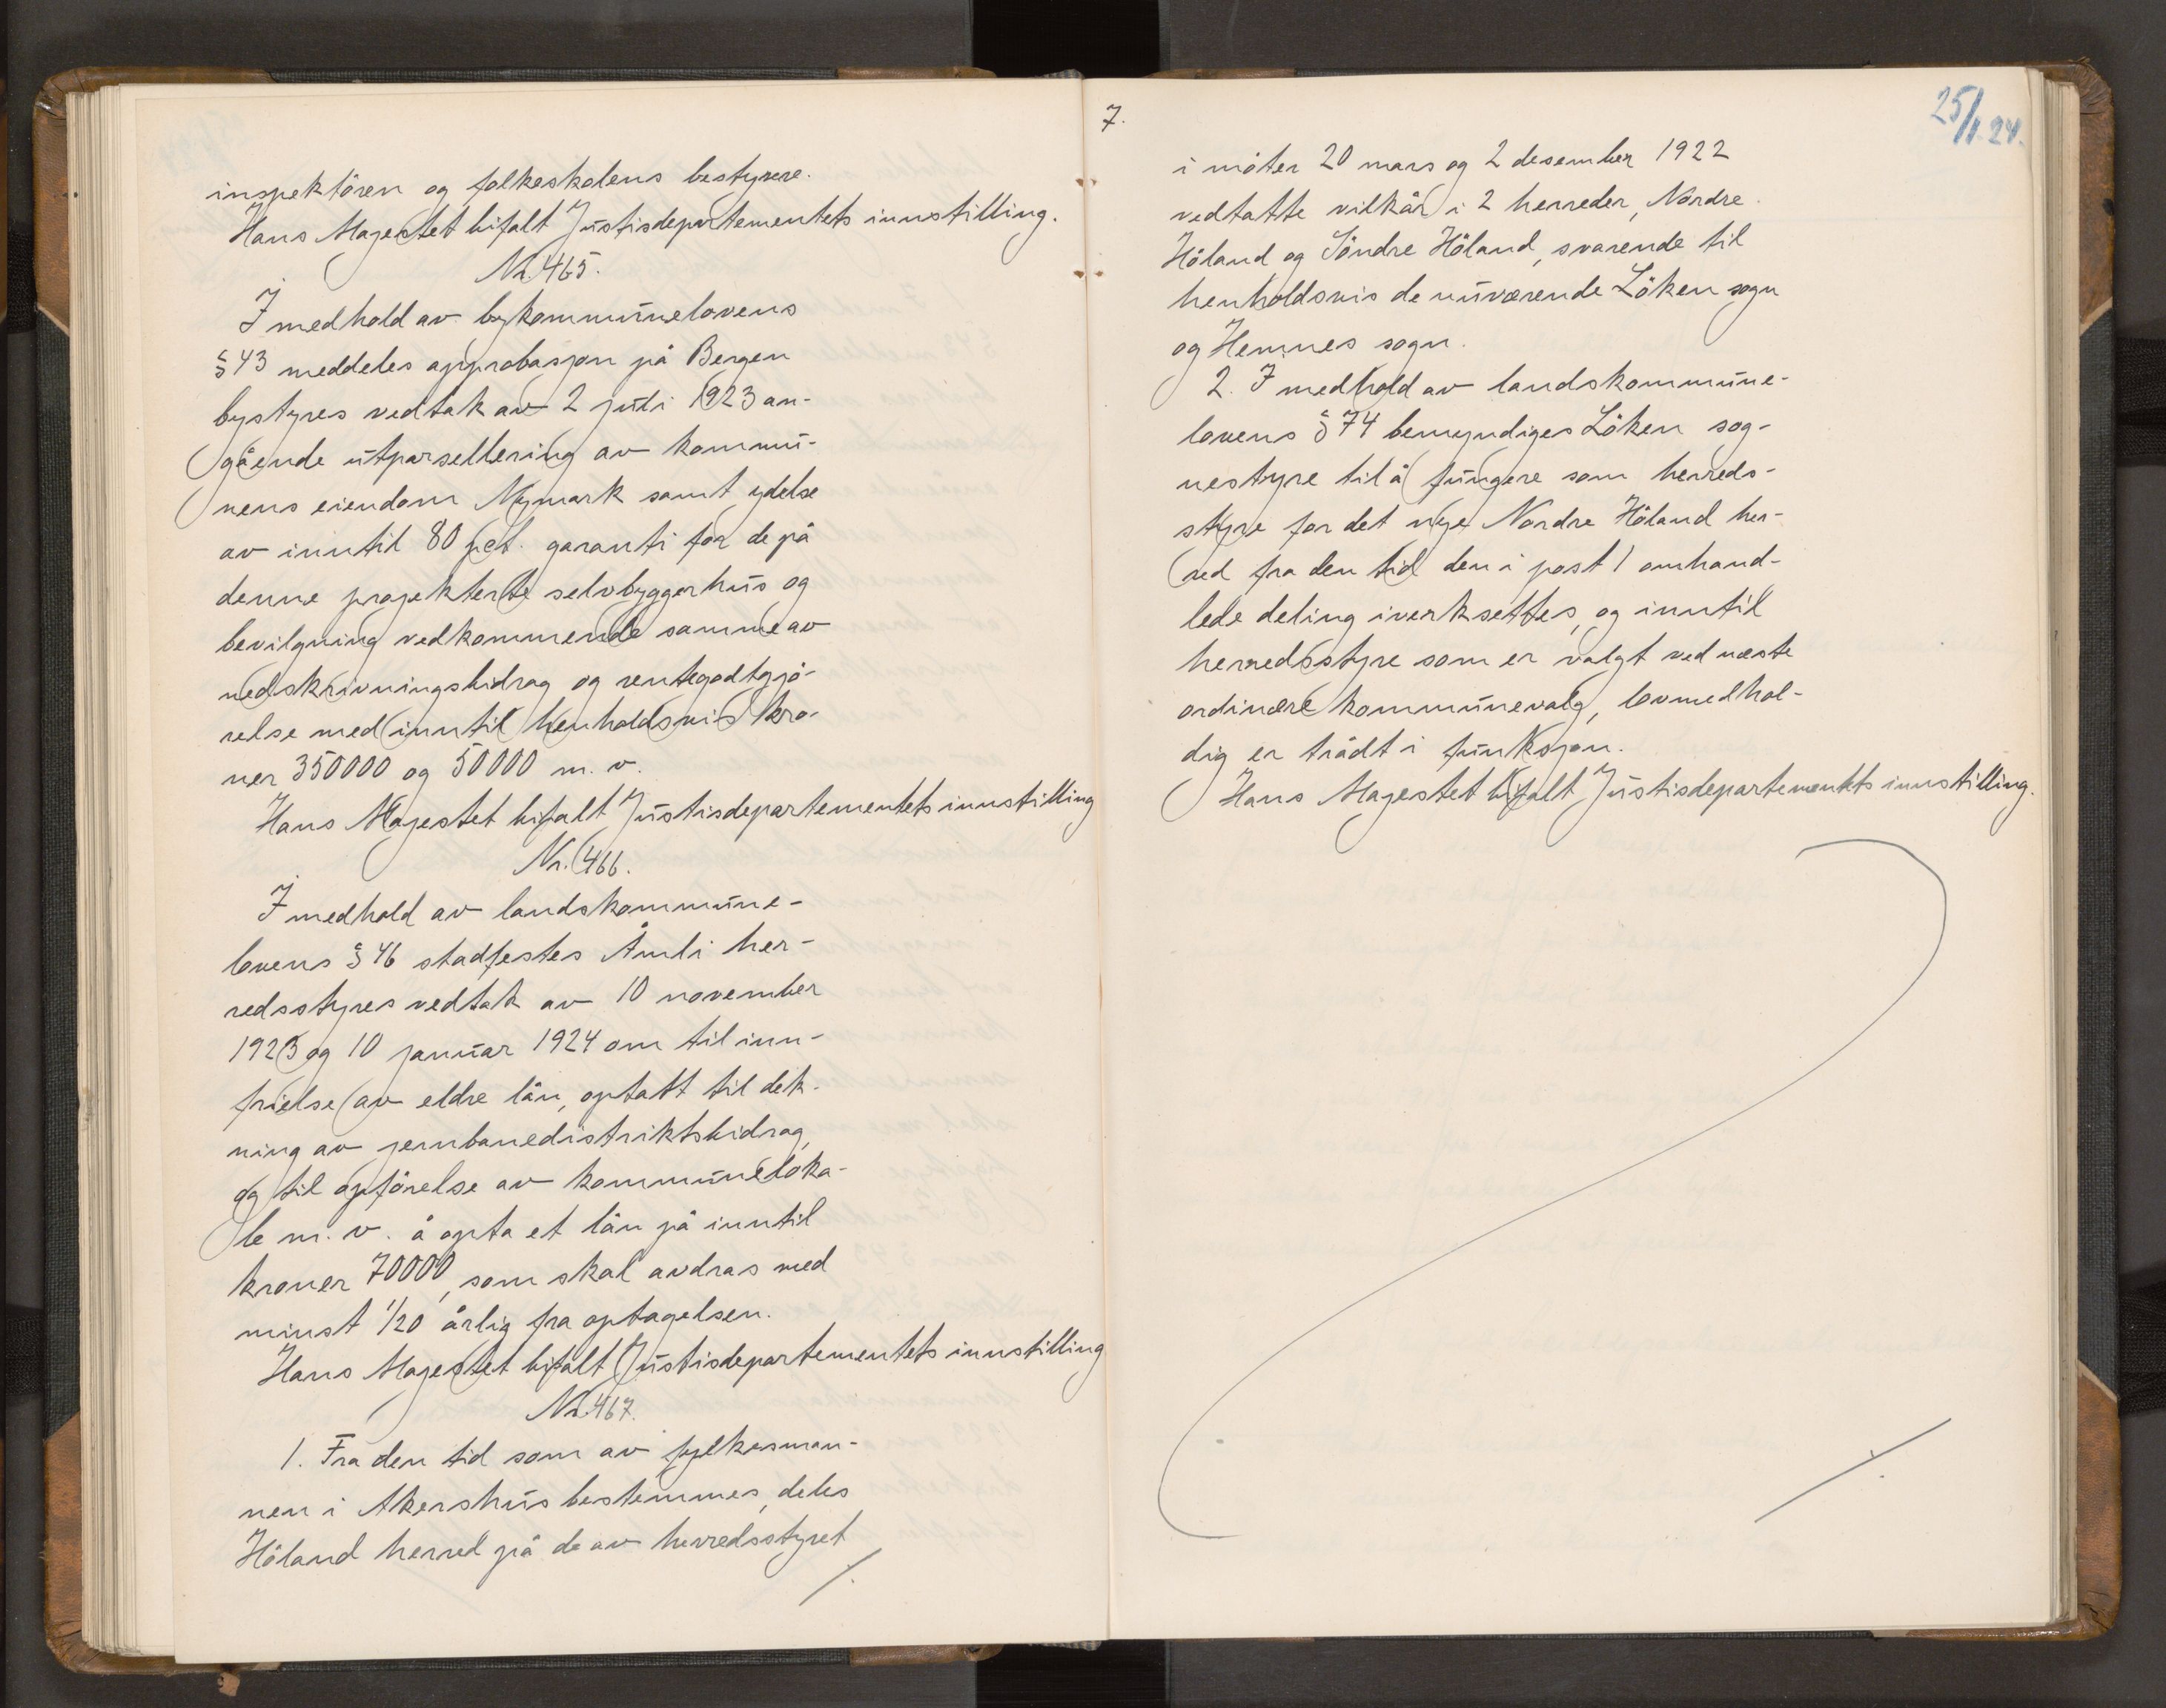 inspektören og folkeskolens bestyrere.
Hans Majestet bifalt Justisdepartementets innstilling.
Nr. 465.
I medhold av bykommunelovens
§ 43 meddeles approbasjon på Bergen
bystyres vedtak av 2 juli 1923 an-
gående utparsellering av kommu-
nens eiendom Nymark samt ydelse
av inntil 80 pct. garanti for de på
denne projekterte selvbyggerhus og
bevilgning vedkommende samme av
nedskrivningsbidrag og rentegodtgjö-
relse med inntil henholdsvis kro-
ner 350000 og 50000 m. v.
Hans Majestet bifalt Justisdepartementets innstilling
Nr. 466.
I medhold av landskommune-
lovens § 46 stadfestes Åmli her-
redsstyres vedtak av 10 november
1923 og 10 januar 1924 om til inn-
frielse av eldre lån, optatt til dek-
ning av jernbanedistriktsbidrag,
og til opförelse av kommuneloka-
le m. v. å opta et lån på inntil
kroner 70000, som skal avdras med
minst 1/20 årlig fra optagelsen.
Hans Majestet bifalt Justisdepartementets innstilling
Nr. 467.
1. Fra den tid som av fylkesman-
nen i Akershus bestemmes, deles
Höland herred på de av herredsstyret
./.
7.
25/1.24.
i möter 20 mars og 2 desember 1922
vedtatte vilkår i 2 herreder, Nordre
Höland og Söndre Höland, svarende til
henholdsvis de nuværende Löken sogn
og Hemnes sogn.
2. I medhold av landskommune-
lovens § 74 bemyndiges Löken sog-
nestyre til å fungere som herreds-
styre for det nye Nordre Höland her-
red fra den tid den i post 1 omhand-
lede deling iverksettes, og inntil
herredsstyre som er valgt ved næste
ordinære kommunevalg, lovmedhol-
dig er trådt i funksjon.
Hans Majestet bifalt Justisdepartementets innstilling.
./.